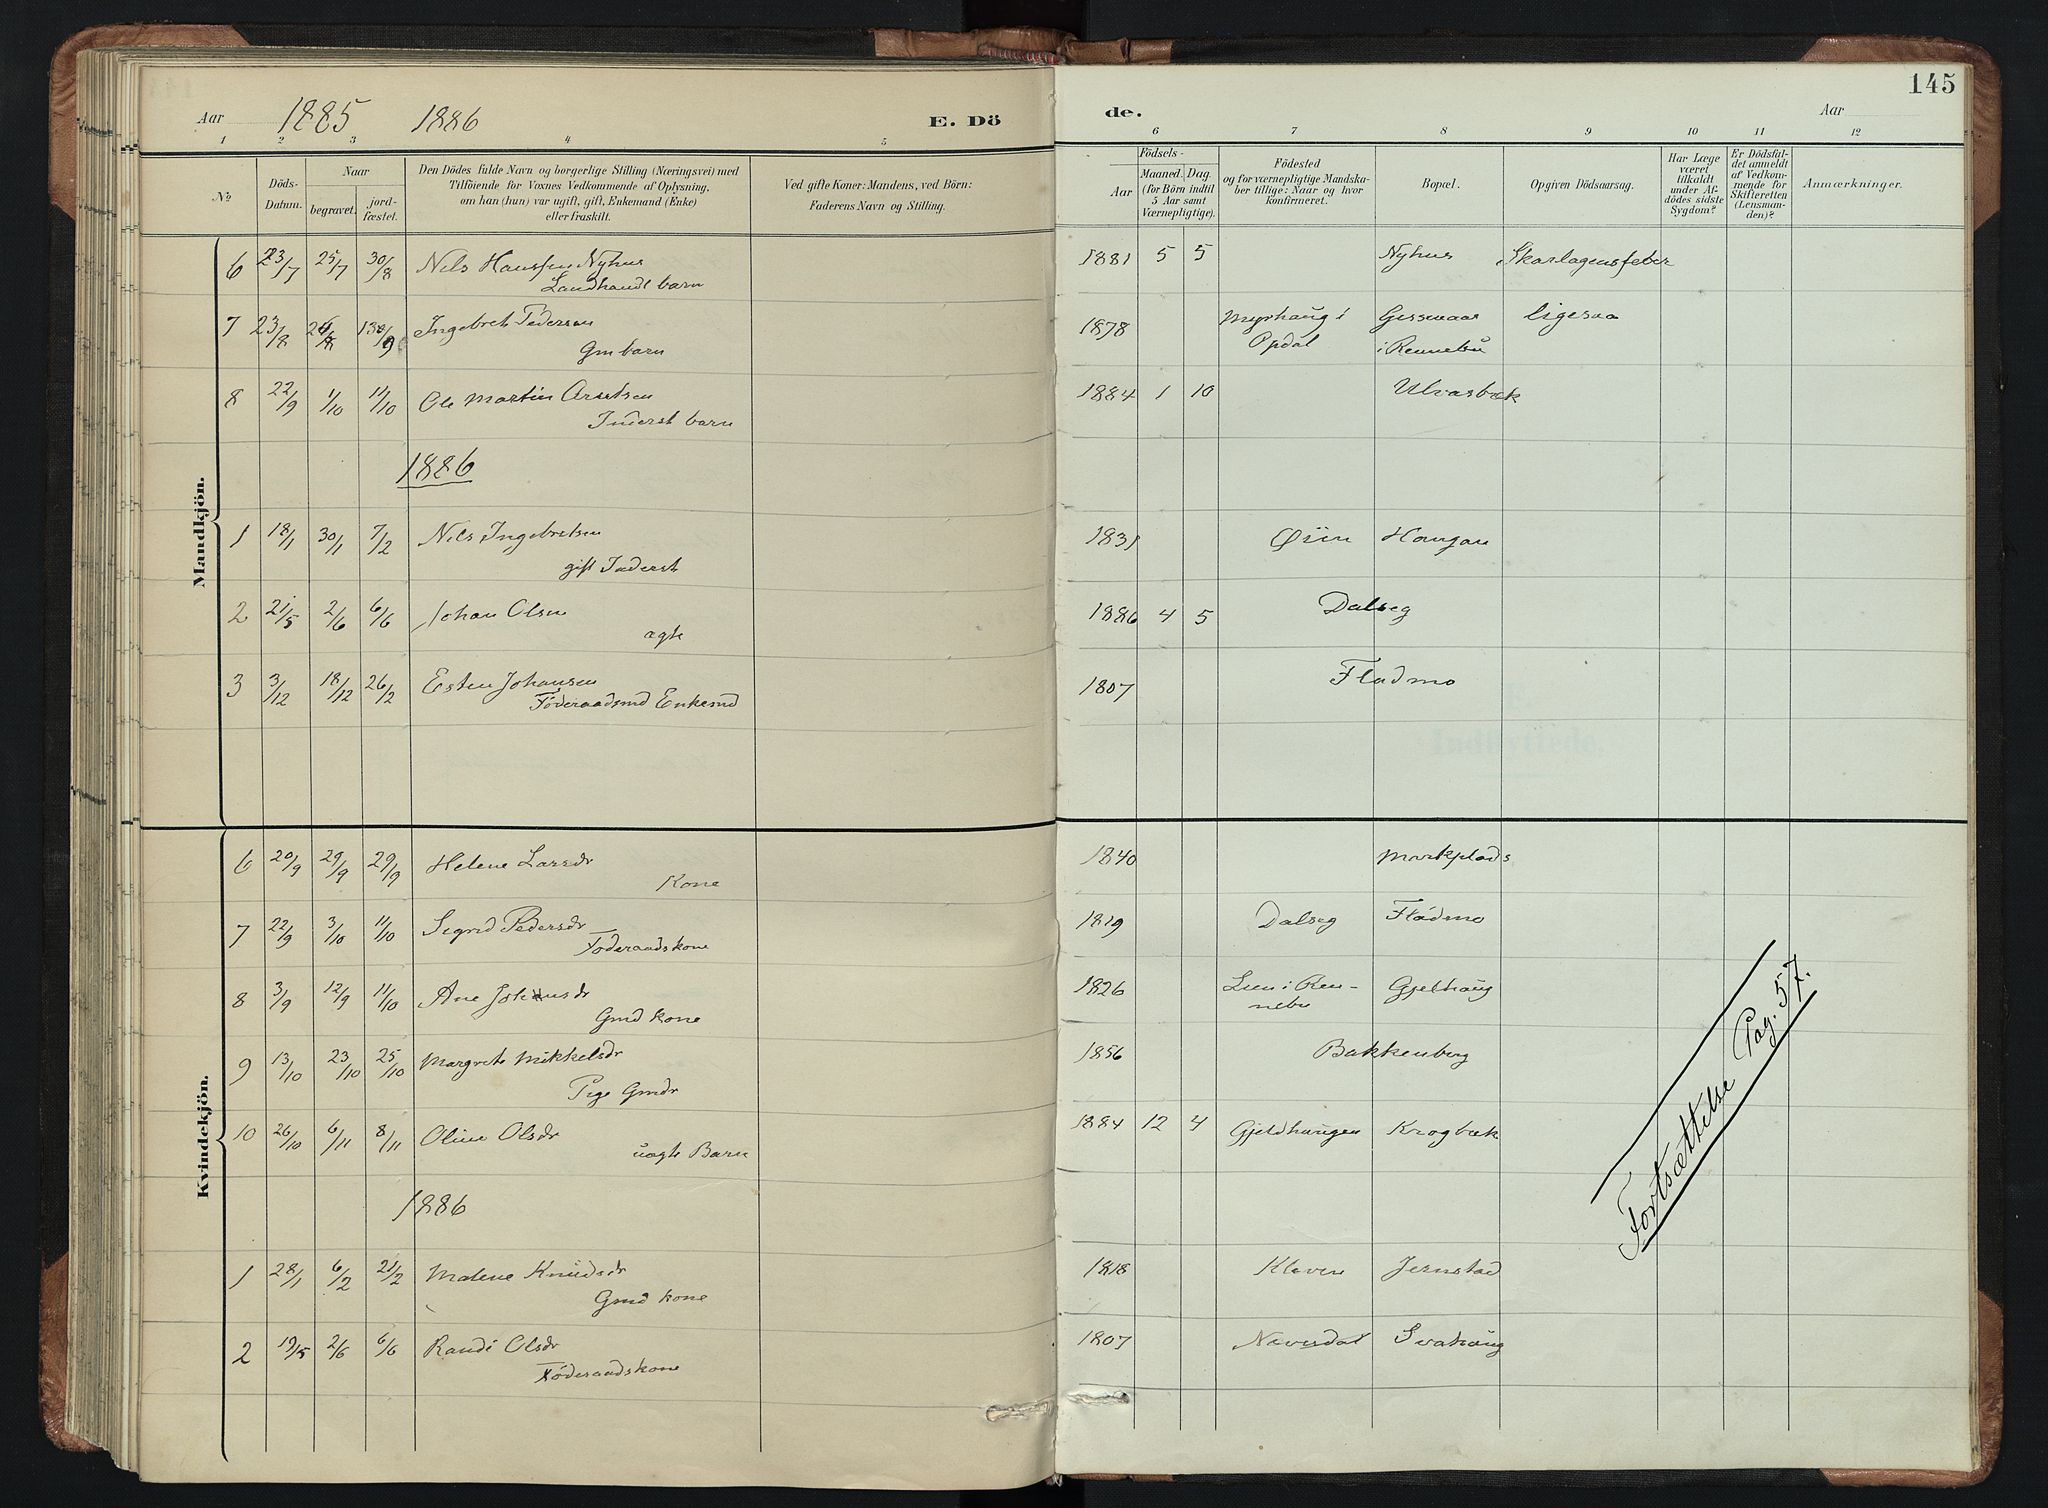 145
Aar 1885 1886 E. Dö de. Aar
1 2 3 4 5 6 7 8 9 10 11 12
No
Döds-Datum.
Naar
begravet.
jord-fæstet.
Den Dödes fulde Navn og borgerlige Stilling (Næringsvei) med
Tilföiende for Voxnes Vedkommende af Oplysning,
om han (hun) var ugift, gift, Enkemand (Enke)
eller fraskilt.
Ved gifte Koner: Mandens, ved Börn:
Faderens Navn og Stilling.
Födsels-
Aar
Maaned. Dag.
(for Börn indtil
5 Aar samt
Værnepligtige).
Födested
og for værnepligtige Mandska-
ber tillige: Naar og hvor
konfirmeret.
Bopæl.
Opgiven Dödsaarsag.
Har Læge
været
tilkaldt
under Af-
dödes sidste
Sygdom?
Er Dödsfal-
det anmeldt
af Vedkom-
mende for
Skifteretten
(Lensman-
den)?
Anmærkninger.
Mandkjön.
6 23/7 25/7 30/8 Nils Hansen Nyhus 1881 5 5 Nyhus Skarlagensfeber
Landhandl barn
7 23/8 /8 /9 Ingebret Pedersen 1878 Myrhaug i Gisnaas ligesaa
Gm barn Opdal i Rennebu
8 22/9 1/10 11/10 Ole Martin Arntsen 1884 1 10 Ulvasbæk
Inderst barn
1886
1 18/1 30/1 7/2 Nils Ingebretsen 1831 Øiin Haugan
gift Inderst
2 21/5 2/6 6/6 Johan Olsen 1886 4 5 Dalseg
ægte
3 3/12 18/12 26/2 Esten Johansen 1807 Fladmo
Föderaadsmd Enkemd
Kvindekjön.
6 20/9 29/9 29/9 Helene Larsdr 1840 Markplads
Kone
7 22/9 3/10 11/10 Sigrid Pedersdr 1819 Dalseg Fladmo
Föderaadskone
8 3/9 12/9 11/10 Ane Johansdr 1826 i Ren- Gjelhaug
Gmd kone nebu
9 13/10 23/10 25/10 Margrete Mikkelsdr 1856 Bakkenberg
Pige Gmdr
10 26/10 6/11 8/11 Oline Olsdr 1884 12 4 Gjeldhaugen Krogbæk
uægte Barn
1886
1 28/1 6/2 21/2 Malene Knudsdr 1818 Kleven Jernstad
Gmd kone
2 19/5 2/6 6/6 Randi Olsdr 1807 Neverdal Svahaug
Föderaadskone
Fortsættelse Pag. 57.